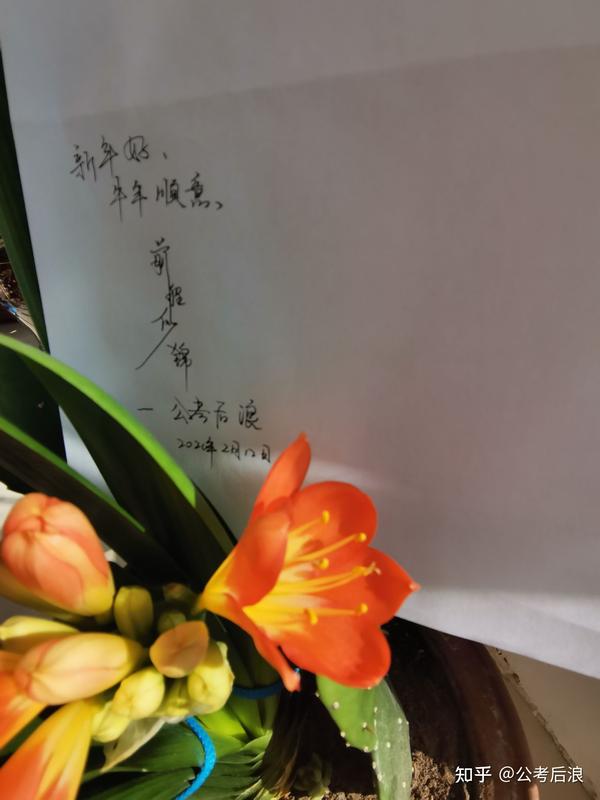 新年好、
牛年顺意、
前程似锦
— 公考后浪
2021年2月12日
知乎 @公考后浪